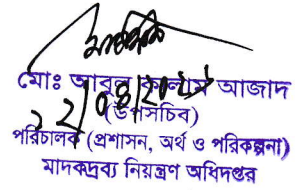 মোঃ আবুল কালাম আজাদ
(উপসচিব)
পরিচালক (প্রশাসন, অর্থ ও পরিকল্পনা)
মাদকদ্রব্য নিয়ন্ত্রণ অধিদপ্তর